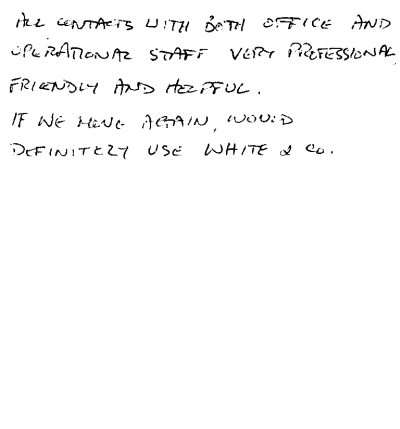 ALL CONTACTS WITH BOTH OFFICE AND
OPERATIONAL STAFF VERY PROFESSIONAL,
FRIENDLY AND HELPFUL.
IF WE MOVE AGAIN, WOULD
DEFINITELY USE WHITE & Co.